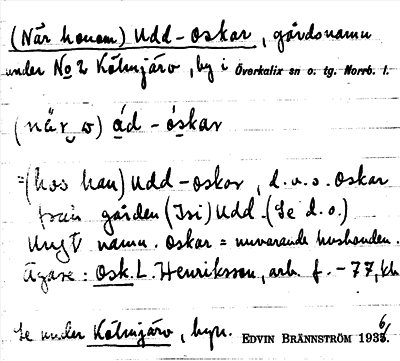 (När honom) Udd-Oskar, gårdsnamn
under No 2 Kölmjärv, by i Överkalix sn o. tg. Norrb. l.
(när o) ád - óskar
=(hos han) Udd-Oskar, d.v.s. Oskar
från gården (Isi) Udd. (Se d.o.)
Ungt namn. Oskar = nuvarande husbonden.
Ägare: Osk. L. Henriksson, arb. f. -77, 
Se under Kölmjärv, byn. EDVIN BRÄNNSTRÖM 1936.